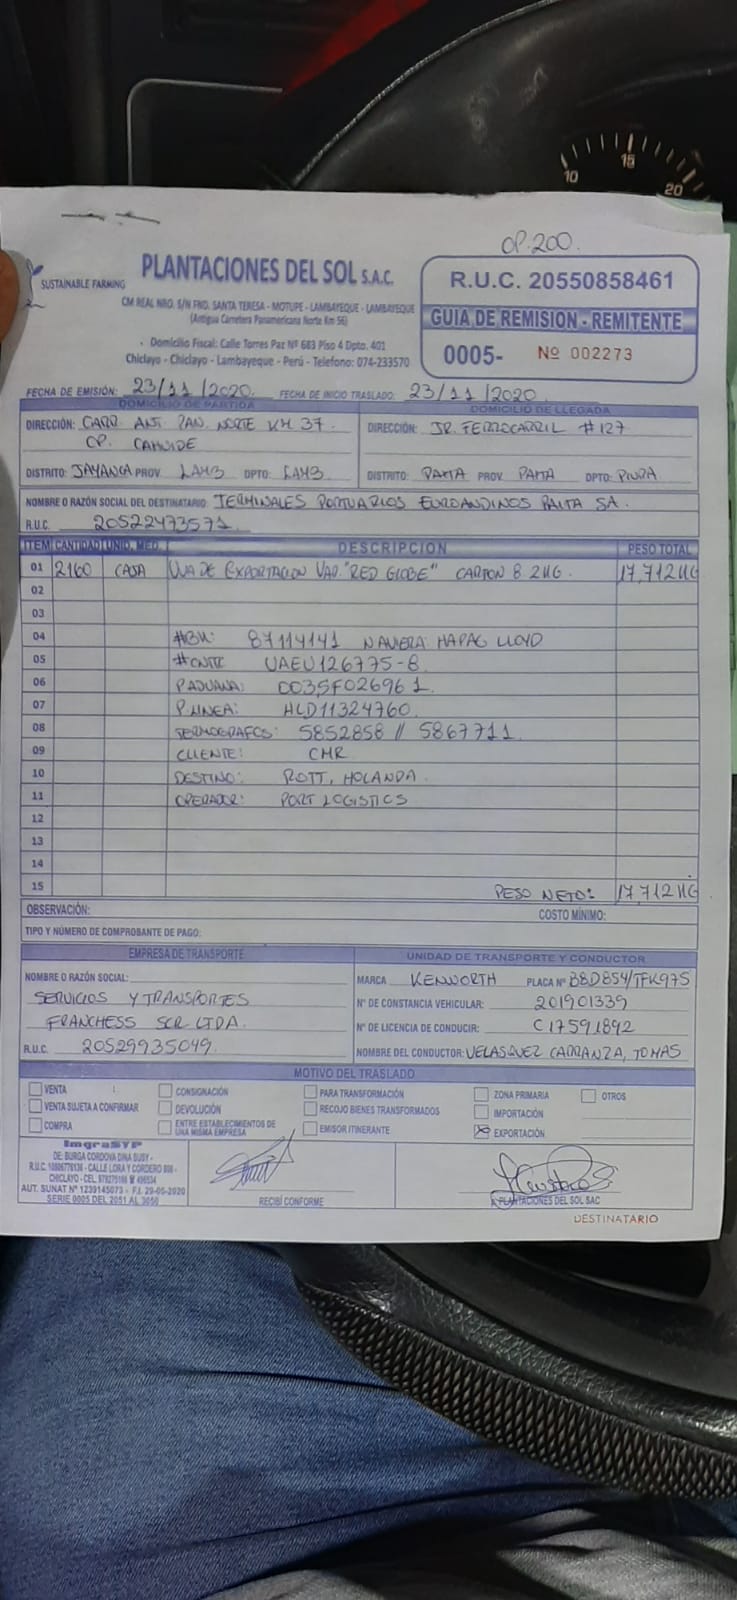 10 15 20
OP.200.
SUSTAINABLE FARMING
PLANTACIONES DEL SOL S.A.C.
CM REAL NRO. S/N FND. SANTA TERESA - MOTUPE - LAMBAYEQUE - LAMBAYEQUE
(Antigua Carretera Panamericana Norte Km 56)
Domicilio Fiscal: Calle Torres Paz Nº 683 Piso 4 Dpto. 401
Chiclayo - Chiclayo - Lambayeque - Perú - Telefono: 074-233570
R.U.C. 20550858461
GUIA DE REMISION - REMITENTE
0005- Nº 002273
FECHA DE EMISIÓN: 23/11/2020. FECHA DE INICIO TRASLADO: 23/11/2020.
DOMICILIO DE PARTIDA DOMICILIO DE LLEGADA
DIRECCIÓN: CARR. ANT. PAN. NORTE KM 37. DIRECCIÓN: JR. FERROCARRIL #127
CP. CAHUIDE
DISTRITO: JAYANCA PROV. LAMB DPTO: LAMB DISTRITO: PAITA PROV. PAITA DPTO: PIURA
NOMBRE O RAZÓN SOCIAL DEL DESTINATARIO: TERMINALES PORTUARIOS EUROANDINOS PAITA SA.
R.U.C. 20522473571
ITEM CANTIDAD UNID. MED. DESCRIPCION PESO TOTAL
01 2160 CAJA UVA DE EXPORTACION VAR. "RED GLOBE" CARTON 8.2KG. 17,712KG
02
03
04 #BK: 87114141 NAVIERA: HAPAG LLOYD
05 #CNTR UAEU126775-8
06 P.ADUANA: 0035F026961.
07 P.LINEA: HLD11324760.
08 TERMOGRAFOS: 5852858 // 5867711.
09 CLIENTE: CMR
10 DESTINO: ROTT, HOLANDA.
11 OPERADOR: PORT LOGISTICS
12
13
14
15 PESO NETO: 17,712KG
OBSERVACIÓN: COSTO MÍNIMO:
TIPO Y NÚMERO DE COMPROBANTE DE PAGO:
EMPRESA DE TRANSPORTE UNIDAD DE TRANSPORTE Y CONDUCTOR
NOMBRE O RAZÓN SOCIAL: MARCA KENWORTH PLACA Nº B8D854/TFK975
SERVICIOS Y TRANSPORTES Nº DE CONSTANCIA VEHICULAR: 201901339
FRANCHESS SCR LTDA. Nº DE LICENCIA DE CONDUCIR: C17591892
R.U.C. 20529935049. NOMBRE DEL CONDUCTOR: VELASQUEZ CARRANZA, TOMAS
MOTIVO DEL TRASLADO
VENTA CONSIGNACIÓN PARA TRANSFORMACIÓN ZONA PRIMARIA OTROS
VENTA SUJETA A CONFIRMAR DEVOLUCIÓN RECOJO BIENES TRANSFORMADOS IMPORTACIÓN
COMPRA ENTRE ESTABLECIMIENTOS DE UNA MISMA EMPRESA EMISOR ITINERANTE X EXPORTACIÓN
ImgraSYP
DE: BURGA CORDOVA DINA SUSY -
CALLE LORA Y CORDERO
CHICLAYO - CEL.
AUT. SUNAT Nº 1239145073 - F.I. 29-05-2020
SERIE 0005 DEL 2051 AL 3050
RECIBÍ CONFORME
PLANTACIONES DEL SOL SAC
DESTINATARIO